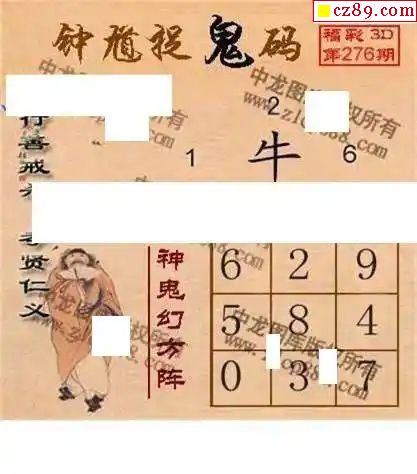 cz89.com
钟馗捉鬼码
福彩3D
第276期
2
1
牛
6
行善戒
贤仁义
神鬼幻方阵
6 2 9
5 8 4
0 3 7
中龙图库版权所有